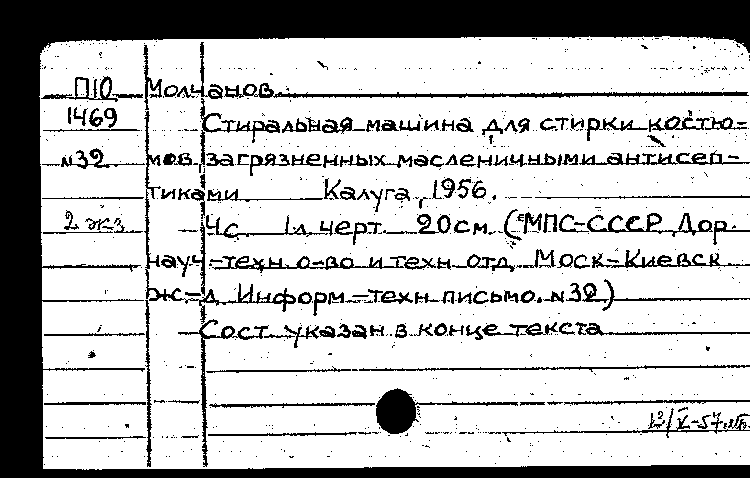 П10 Молчанов.
1469 Стиральная машина для стирки костю-
№32 мов, загрязненных масленичными антисеп-
тиками. Калуга, 1956.
2 экз 4с. 1л. черт. 20см. (МПС-СССР. Дор.
науч.-техн. о-во и техн. отд. Моск-Киевск.
ж-д. Информ-техн. письмо. №32)
Сост. указан в конце текста
13/V-57